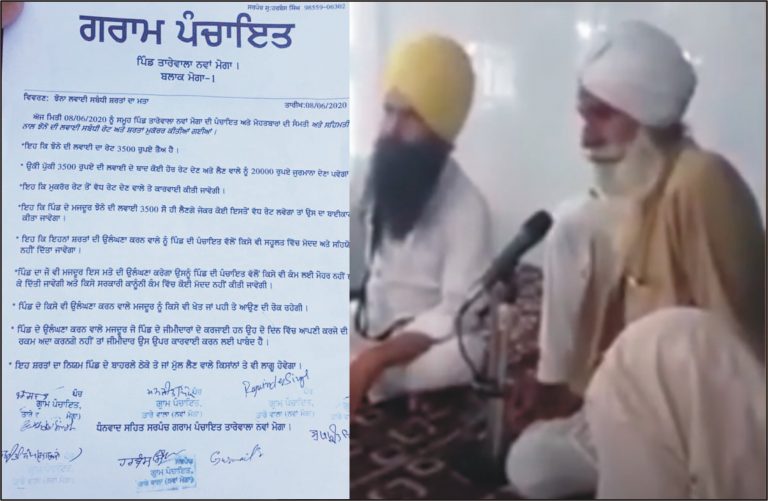 ਸਰਪੰਚ ਸ੍ਰ:ਹਰਬੰਸ ਸਿੰਘ 98559-06302
ਗਰਾਮ ਪੰਚਾਇਤ
ਪਿੰਡ ਤਾਰੇਵਾਲਾ ਨਵਾਂ ਮੋਗਾ।
ਬਲਾਕ ਮੋਗਾ-1
ਵਿਵਰਣ: ਝੋਨਾ ਲਵਾਈ ਸਬੰਧੀ ਸ਼ਰਤਾਂ ਦਾ ਮਤਾ ਤਾਰੀਖ:08/06/2020
ਅੱਜ ਮਿਤੀ 08/06/2020 ਨੂੰ ਸਮੂਹ ਪਿੰਡ ਤਾਰੇਵਾਲਾ ਨਵਾਂ ਮੋਗਾ ਦੀ ਪੰਚਾਇਤ ਅਤੇ ਮੋਹਤਬਾਰਾਂ ਦੀ ਸੰਮਤੀ ਅਤੇ ਸਹਿਮਤੀ
ਨਾਲ ਝੋਨੇ ਦੀ ਲਵਾਈ ਸਬੰਧੀ ਰੇਟ ਅਤੇ ਸ਼ਰਤਾਂ ਮੁਕੱਰਰ ਕੀਤੀਆਂ ਗਈਆਂ।
*ਇਹ ਕਿ ਝੋਨੇ ਦੀ ਲਵਾਈ ਦਾ ਰੇਟ 3500 ਰੁਪਏ ਤੈਅ ਹੈ।
* ਉਕੀ ਪੁੱਕੀ 3500 ਰੁਪਏ ਦੀ ਲਵਾਈ ਦੇ ਬਾਦ ਕੋਈ ਹੋਰ ਰੇਟ ਦੇਣ ਅਤੇ ਲੈਣ ਵਾਲੇ ਨੂੰ 20000 ਰੁਪਏ ਜੁਰਮਾਨਾ ਦੇਣਾ ਪਵੇਗਾ
*ਇਹ ਕਿ ਮੁਕੱਰਰ ਰੇਟ ਤੋਂ ਵੱਧ ਰੇਟ ਦੇਣ ਵਾਲੇ ਤੇ ਕਾਰਵਾਈ ਕੀਤੀ ਜਾਵੇਗੀ।
*ਇਹ ਕਿ ਪਿੰਡ ਦੇ ਮਜਦੂਰ ਝੋਨੇ ਦੀ ਲਵਾਈ 3500 ਸੋ ਹੀ ਲੈਣਗੇ ਜੇਕਰ ਕੋਈ ਇਸਤੋਂ ਵੱਧ ਰੇਟ ਲਵੇਗਾ ਤਾਂ ਉਸ ਦਾ ਬਾਈਕਾਟ
ਕੀਤਾ ਜਾਵੇਗਾ।
*ਇਹ ਕਿ ਇਹਨਾਂ ਸ਼ਰਤਾਂ ਦੀ ਉਲੰਘਣਾ ਕਰਨ ਵਾਲੇ ਨੂੰ ਪਿੰਡ ਦੀ ਪੰਚਾਇਤ ਵੱਲੋਂ ਕਿਸੇ ਵੀ ਸਹੂਲਤ ਵਿੱਚ ਮੱਦਦ ਅਤੇ ਸਹਿਯੋਗ
ਨਹੀਂ ਦਿੱਤਾ ਜਾਵੇਗਾ।
*ਪਿੰਡ ਦਾ ਜੋ ਵੀ ਮਜਦੂਰ ਇਸ ਮਤੇ ਦੀ ਉਲੰਘਣਾ ਕਰੇਗਾ ਉਸਨੂੰ ਪਿੰਡ ਦੀ ਪੰਚਾਇਤ ਵੱਲੋਂ ਕਿਸੇ ਵੀ ਕੰਮ ਲਈ ਮੋਹਰ ਨਹੀਂ
ਕੇ ਦਿੱਤੀ ਜਾਵੇਗੀ ਅਤੇ ਕਿਸੇ ਸਰਕਾਰੀ ਕਾਨੂੰਨੀ ਕੰਮ ਵਿੱਚ ਕੋਈ ਮੱਦਦ ਨਹੀਂ ਕੀਤੀ ਜਾਵੇਗੀ।
* ਪਿੰਡ ਦੇ ਕਿਸੇ ਵੀ ਉਲੰਘਣਾ ਕਰਨ ਵਾਲੇ ਮਜਦੂਰ ਨੂੰ ਕਿਸੇ ਵੀ ਖੇਤ ਜਾਂ ਪਹੀ ਤੇ ਆਉਣ ਦੀ ਰੋਕ ਰਹੇਗੀ।
* ਪਿੰਡ ਦੇ ਉਲੰਘਣਾ ਕਰਨ ਵਾਲੇ ਮਜਦੂਰ ਜੋ ਪਿੰਡ ਦੇ ਜੀਮੀਦਾਰਾਂ ਦੇ ਕਰਜਾਈ ਹਨ ਉਹ ਦੋ ਦਿਨ ਵਿੱਚ ਆਪਣੀ ਕਰਜੇ ਦੀ
ਰਕਮ ਅਦਾ ਕਰਨਗੇ ਨਹੀਂ ਤਾਂ ਜੀਮੀਦਾਰ ਉਸ ਉਪਰ ਕਾਰਵਾਈ ਕਰਨ ਲਈ ਪਾਬੰਦ ਹੈ।
* ਇਹ ਸ਼ਰਤਾਂ ਦਾ ਨਿਯਮ ਪਿੰਡ ਦੇ ਬਾਹਰਲੇ ਠੇਕੇ ਤੇ ਜਾਂ ਮੁੱਲ ਲੈਣ ਵਾਲੇ ਕਿਸਾਨਾਂ ਤੇ ਵੀ ਲਾਗੂ ਹੋਵੇਗਾ।
ਪੰਚ
ਗ੍ਰਾਮ ਪੰਚਾਇਤ,
ਤਾਰੇ ਵਾਲਾ (ਨਵਾਂ ਮੋਗਾ)
ਪੰਚ
ਗ੍ਰਾਮ ਪੰਚਾਇਤ,
ਤਾਰੇ ਵਾਲਾ (ਨਵਾਂ ਮੋਗਾ)
ਧੰਨਵਾਦ ਸਹਿਤ ਸਰਪੰਚ ਗਰਾਮ ਪੰਚਾਇਤ ਤਾਰੇਵਾਲਾ ਨਵਾਂ ਮੋਗਾ।
ਹਰਬੰਸ ਸਿੰਘ
ਸਰਪੰਚ
ਗ੍ਰਾਮ ਪੰਚਾਇਤ,
ਤਾਰੇ ਵਾਲਾ (ਨਵਾਂ ਮੋਗਾ)